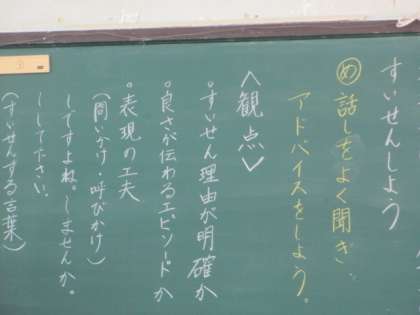 すいせんしよう
め 話しをよく聞き、
アドバイスをしよう。
＜観点＞
。すいせん理由が明確か
。良さが伝わるエピソードか
。表現の工夫
（問いかけ・呼びかけ）
しですよね。しませんか。
ししてください。
（すいせんする言葉）